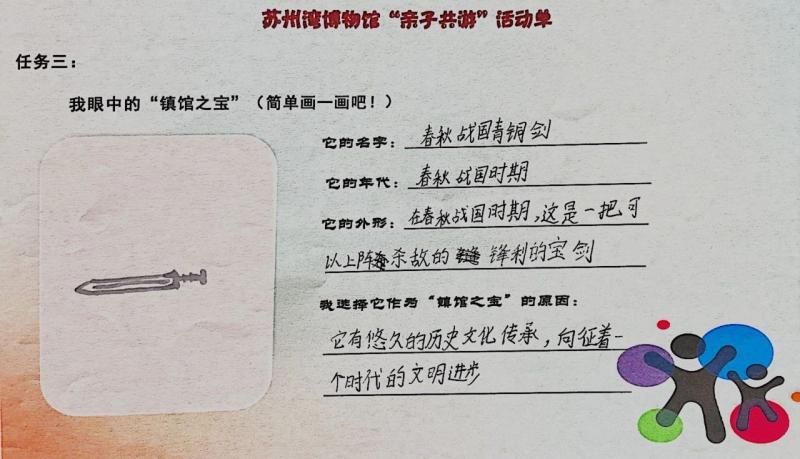 苏州湾博物馆“亲子共游”活动单
任务三：
我眼中的“镇馆之宝”（简单画一画吧！）
它的名字：春秋战国青铜剑
它的年代：春秋战国时期
它的外形：在春秋战国时期，这是一把可
以上阵杀敌的锋利的宝剑
我选择它作为“镇馆之宝”的原因：
它有悠久的历史文化传承，向征着一
个时代的文明进步